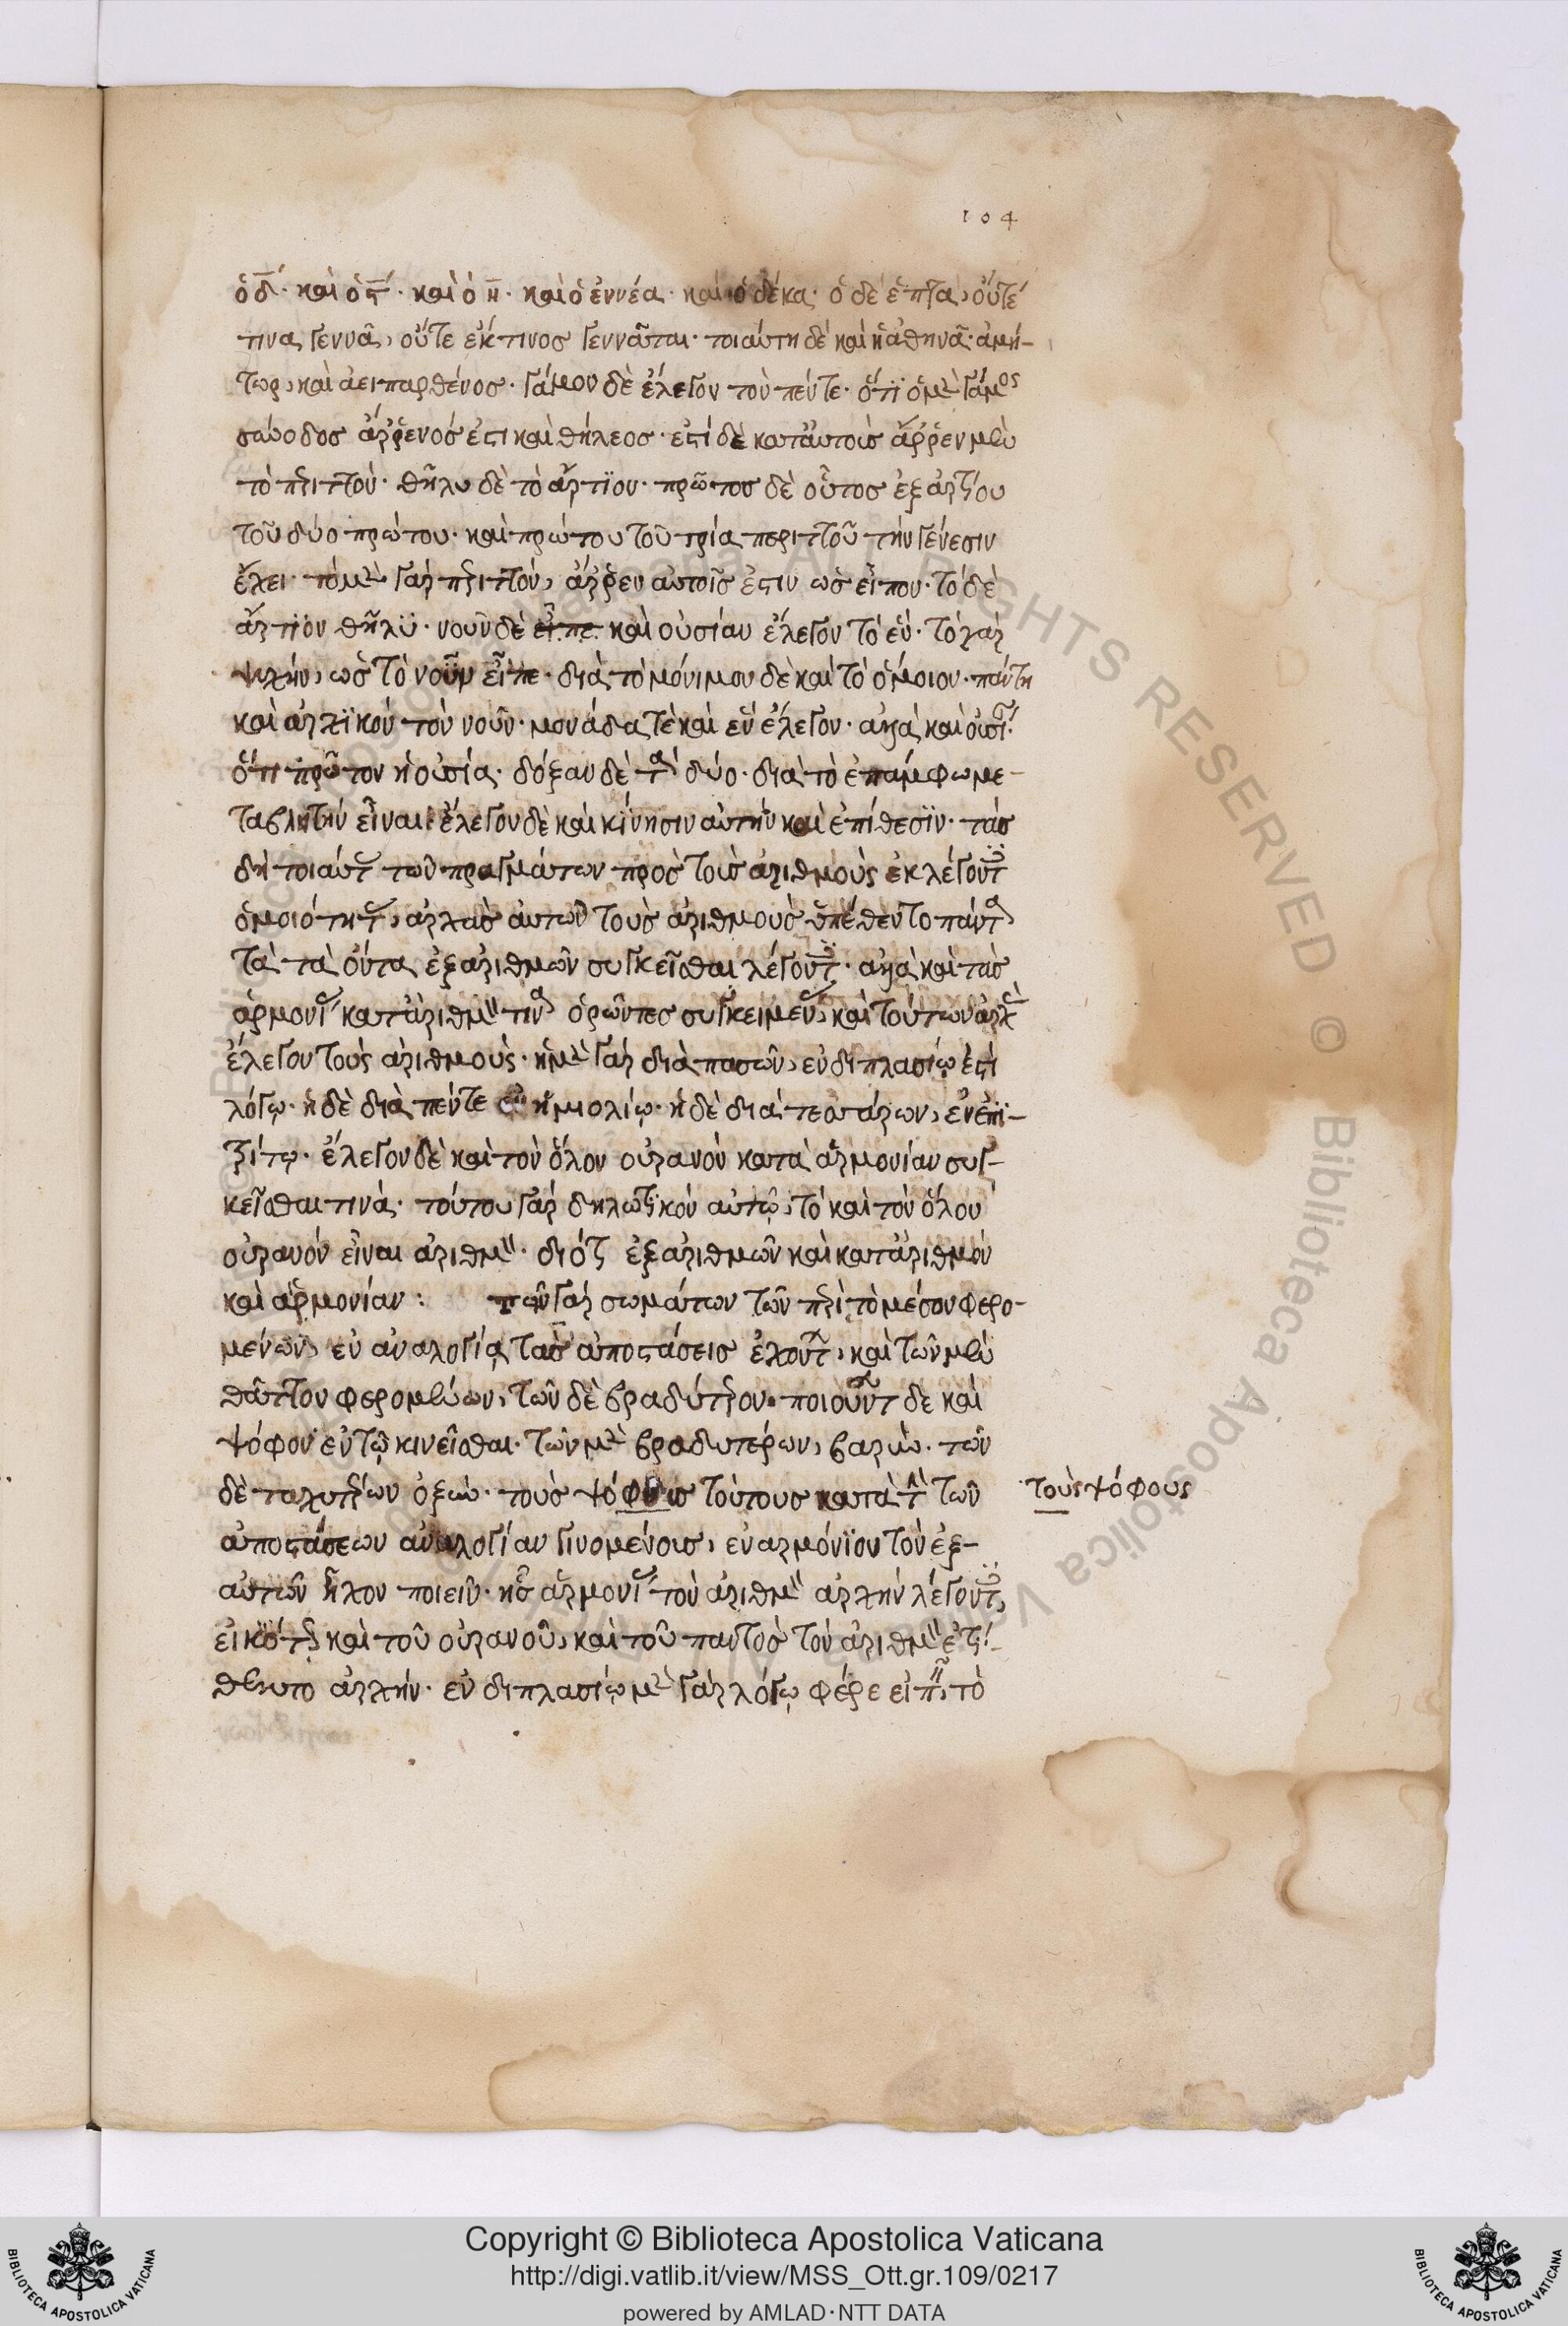 104
ὁ δ̄· καὶ ὁ ϛ̄· καὶ ὁ η̄· καὶ ὁ ἐννέα· καὶ ὁ δέκα· ὁ δὲ ἑπτὰ, οὔτέ
τινα γεννᾶ, οὔτε ἐκ τινοσ γεννᾶται· τοιαύτη δὲ καὶ ἡ ἀθηνᾶ· ἀμή-
τωρ, καὶ ἀειπαρθένοσ· γάμον δὲ ἔλεγον τὸν πέντε· ὅτι ὁ μὲν γάμος
σύνοδοσ ἄρρενόσ ἐστι καὶ θήλεοσ· ἐστὶ δὲ κατ' αὐτοὺσ ἄρρεν μὲν
τὸ περιττὸν· θῆλυ δὲ τὸ ἄρτιον· πρῶτοσ δὲ οὗτοσ ἐξ ἀρτίου
τοῦ δύο πρώτου· καὶ πρώτου τοῦ τρία περιττοῦ τὴν γένεσιν
ἔχει· τὸ μὲν γὰρ περιττὸν, ἄρρεν αὐτοῖσ ἐστιν ὡσ εἶπον· τὸ δὲ
ἄρτιον θῆλυ· νοῦν δὲ εἶπε καὶ οὐσίαν ἔλεγον τὸ ἕν· τὸ γὰρ
ψυχὴν, ὡσ τὸ νοῦν εἶπε· διὰ τὸ μόνιμον δὲ καὶ τὸ ὅμοιον· πάντη
καὶ ἀρχικὸν τὸν νοῦν· μονάδα τὲ καὶ ἓν ἔλεγον· ἀλλὰ καὶ οὐσί
ὅτι πρῶτον ἡ οὐσία· δόξαν δὲ τὰ δύο· διὰ τὸ ἐπ' ἄμφω με-
ταβλητὴν εἶναι· ἔλεγον δὲ καὶ κίνησιν αὐτὴν καὶ ἐπίθεσιν· τὰσ
δὴ τοιαύτ τῶν πραγμάτων πρὸσ τοὺσ ἀριθμοὺς ἐκλέγοντ
ὁμοιότητ, ἀρχὰσ αὐτῶν τοὺσ ἀριθμοὺσ ὑπέθεντο πάντ
τὰ τὰ ὄντα ἐξ ἀριθμῶν συγκεῖσθαι λέγοντ· ἀλλὰ καὶ τὰσ
ἁρμονί κατ' ἀριθμ τιν ὁρῶντεσ συγκειμέν, καὶ τούτων ἀρχ
ἔλεγον τοὺς ἀριθμοὺς· ἡ μὲν γὰρ διὰ πασῶν, ἐν διπλασίῳ ἐστὶ
λόγῳ· ἡ δὲ διὰ πέντε ἐν ἡμιολίῳ· ἡ δὲ διὰ τεσσάρων, ἐν ἐπι-
τρίτῳ· ἔλεγον δὲ καὶ τὸν ὅλον οὐρανὸν κατὰ ἁρμονίαν συγ-
κεῖσθαι τινὰ· τούτου γὰρ δηλωτικὸν αὐτῷ, τὸ καὶ τὸν ὅλον
οὐρανὸν εἶναι ἀριθμ· διότι ἐξ ἀριθμῶν καὶ κατ' ἀριθμὸν
καὶ ἁρμονίαν: τῶν γὰρ σωμάτων τῶν περὶ τὸ μέσον φερο-
μένων, ἐν ἀναλογίᾳ τὰσ ἀποστάσεισ ἐχοντ, καὶ τῶν μὲν
θᾶττον φερομένων, τῶν δὲ βραδύτερον· ποιοῦντ δε καὶ
ψόφον ἐν τῷ κινεῖσθαι· τῶν μὲν βραδυτέρων, βαρὺν· τῶν
δὲ ταχυτέρων ὀξὺν· τοὺσ ψόφουσ τούτουσ κατὰ τὴν τῶν
τοὺς ψόφους
ἀποστάσεων ἀναλογίαν γινομένουσ, ἐναρμόνιον τὸν ἐξ-
αὐτῶν ἦχον ποιεῖν· ἧσ ἁρμονί τὸν ἀριθμ ἀρχὴν λέγοντ,
εἰκότ καὶ τοῦ οὐρανοῦ, καὶ τοῦ παντὸσ τὸν ἀριθμ ἐτί-
θεντο ἀρχήν· ἐν διπλασίῳ μὲν γὰρ λόγῳ φέρε εἰπ τὸ
Copyright © Biblioteca Apostolica Vaticana
http://digi.vatlib.it/view/MSS_Ott.gr.109/0217
powered by AMLAD·NTT DATA
BIBLIOTECA APOSTOLICA VATICANA
BIBLIOTECA APOSTOLICA VATICANA